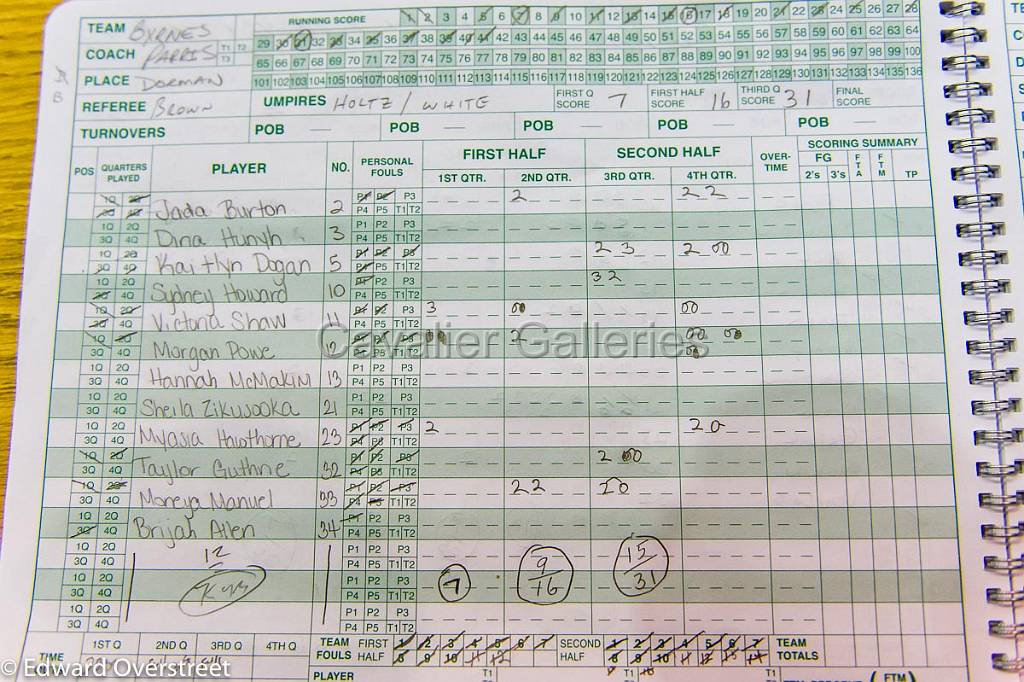 TEAM BYRNES RUNNING SCORE 1 2 3 4 5 6 7 8 9 10 11 12 13 14 15 16 17 18 19 20 21 22 23 24 25 26 27 28
29 30 31 32 33 34 35 36 37 38 39 40 41 42 43 44 45 46 47 48 49 50 51 52 53 54 55 56 57 58 59 60 61 62 63 64
COACH PARRIS T1 T2 T3 65 66 67 68 69 70 71 72 73 74 75 76 77 78 79 80 81 82 83 84 85 86 87 88 89 90 91 92 93 94 95 96 97 98 99 100
PLACE DORMAN 101 102 103 104 105 106 107 108 109 110 111 112 113 114 115 116 117 118 119 120 121 122 123 124 125 126 127 128 129 130 131 132 133 134 135 136
REFEREE BROWN UMPIRES HOLTZ / WHITE FIRST Q SCORE 7 FIRST HALF SCORE 16 THIRD Q SCORE 31 FINAL SCORE
TURNOVERS POB — POB — POB — POB — POB —
POS QUARTERS PLAYED PLAYER NO. PERSONAL FOULS FIRST HALF SECOND HALF OVER-TIME SCORING SUMMARY
1ST QTR. 2ND QTR. 3RD QTR. 4TH QTR. FG 2's 3's FTA FTM TP
1Q 2Q 3Q 4Q Jada Burton 2 P1 P2 P3 P4 P5 T1 T2 2 2 2
1Q 2Q 3Q 4Q Dina Hunyh 3 P1 P2 P3 P4 P5 T1 T2
1Q 2Q 3Q 4Q Kaitlyn Dogan 5 P1 P2 P3 P4 P5 T1 T2 2 3 2 00
1Q 2Q 3Q 4Q Sydney Howard 10 P1 P2 P3 P4 P5 T1 T2 3 2
1Q 2Q 3Q 4Q Victoria Shaw 11 P1 P2 P3 P4 P5 T1 T2 3 00 00
1Q 2Q 3Q 4Q Morgan Powe 12 P1 P2 P3 P4 P5 T1 T2 00 2 00 00 00
1Q 2Q 3Q 4Q Hannah McMakin 13 P1 P2 P3 P4 P5 T1 T2
1Q 2Q 3Q 4Q Sheila Zikusooka 21 P1 P2 P3 P4 P5 T1 T2
1Q 2Q 3Q 4Q Myasia Hawthorne 23 P1 P2 P3 P4 P5 T1 T2 2 2 0
1Q 2Q 3Q 4Q Taylor Guthrie 32 P1 P2 P3 P4 P5 T1 T2 2 00
1Q 2Q 3Q 4Q Moneya Manuel 33 P1 P2 P3 P4 P5 T1 T2 2 2
1Q 2Q 3Q 4Q Brijah Allen 34 P1 P2 P3 P4 P5 T1 T2
1Q 2Q 3Q 4Q 12 P1 P2 P3 P4 P5 T1 T2 9 15
1Q 2Q 3Q 4Q P1 P2 P3 P4 P5 T1 T2 7 16 31
1Q 2Q 3Q 4Q P1 P2 P3 P4 P5 T1 T2
TIME 1ST Q 2ND Q 3RD Q 4TH Q TEAM FOULS FIRST HALF 1 2 3 4 5 6 7 8 9 10 11 12 SECOND HALF 1 2 3 4 5 6 7 8 9 10 11 12 13 14 TEAM TOTALS
PLAYER T1 T1 (FTM)
Cavalier Galleries
©Edward Overstreet